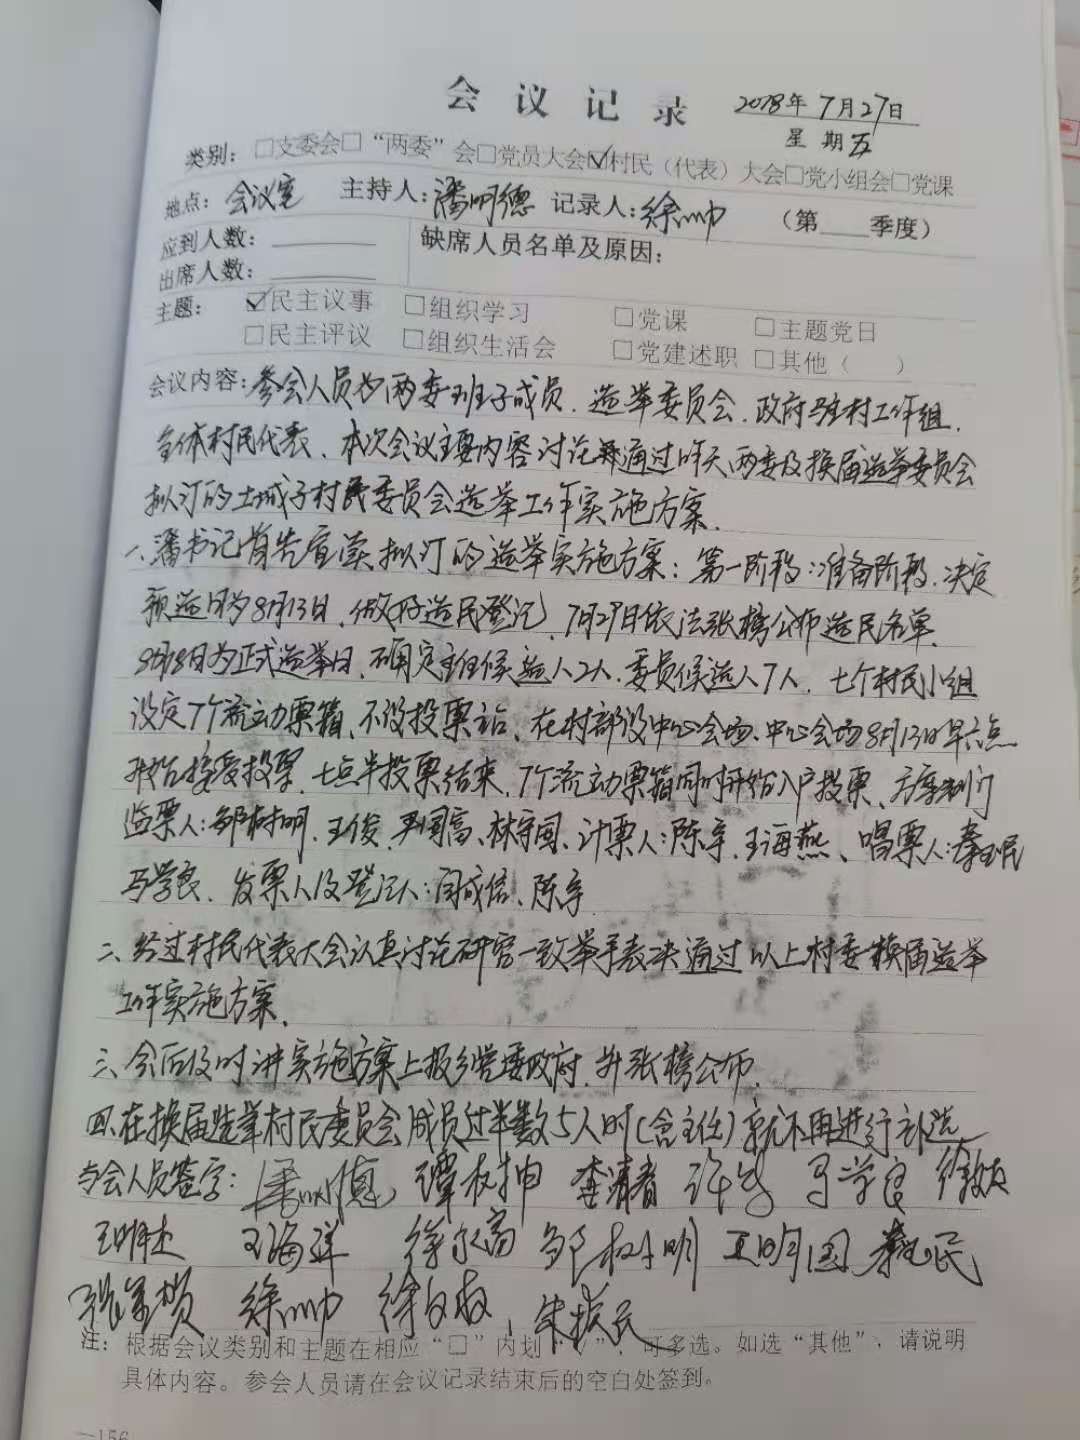 会议记录
2018年7月27日
星期五
类别：□支委会□“两委”会□党员大会☑村民（代表）大会□党小组会□党课
地点：会议室 主持人：潘明德 记录人：徐帅 （第____季度）
应到人数：
出席人数：
缺席人员名单及原因：
主题：☑民主议事 □组织学习 □党课 □主题党日
□民主评议 □组织生活会 □党建述职 □其他（ ）
会议内容：参会人员为两委班子成员、选举委员会、政府驻村工作组、
全体村民代表、本次会议主要内容讨论并通过昨天两委及换届选举委员会
拟订的土城子村民委员会选举工作实施方案、
一、潘书记首先宣读拟订的选举实施方案：第一阶段：准备阶段、决定
预选日为8月13日、做好选民登记、7月29日依法张榜公布选民名单、
8月18日为正式选举日、确定主任候选人2人、委员候选人7人、七个村民小组
设定7个流动票箱、不设投票站、在村部设中心会场、中心会场8月13日早六点
开始接受投票、七点半投票结束、7个流动票箱同时开始入户投票、
监票人：邹树明、王俊、尹国富、林守国、计票人：陈宇、王海燕、唱票人：秦玉民
马学良、发票人及登记人：闫成信、陈宇
二、经过村民代表大会认真讨论研究一致举手表决通过以上村委换届选举
工作实施方案、
三、会后及时讲实施方案上报乡党委政府、并张榜公布、
四、在换届选举村民委员会成员过半数5人时（含主任）就不再进行补选
与会人员签字：潘明德 马学良
王海洋 邹树明 王明国 秦玉民
徐帅
注：根据会议类别和主题在相应“□”内划“ ”，可多选。如选“其他”，请说明
具体内容。参会人员请在会议记录结束后的空白处签到。
—156